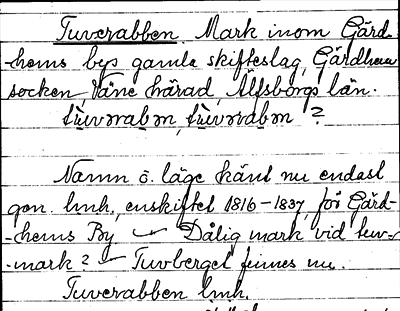 Tuverabben, Mark inom Gärd-
-hems bys gamla skifteslag, Gärdhem
socken, Väne härad, Älfsborgs län.
?
Namn o. läge känt nu endast
gen. lmh., enskiftet 1816-1837, för Gärd-
-hems By Dålig mark vid tuv-
-mark? Tuvberget finnes nu.
Tuverabben lmh.